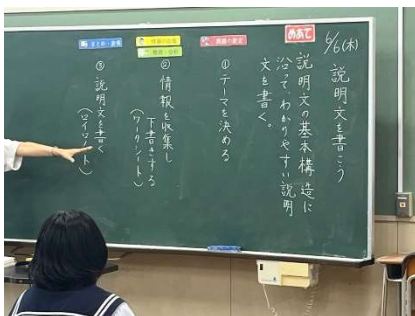 6/6(木)
説明文を書こう
めあて
説明文の基本構造に
沿って、わかりやすい説明
文を書く。
課題の設定
①テーマを決める
情報の収集
整理・分析
②情報を収集し
下書きする
(ワークシート)
まとめ・表現
③説明文を書く
(ロイロノート)